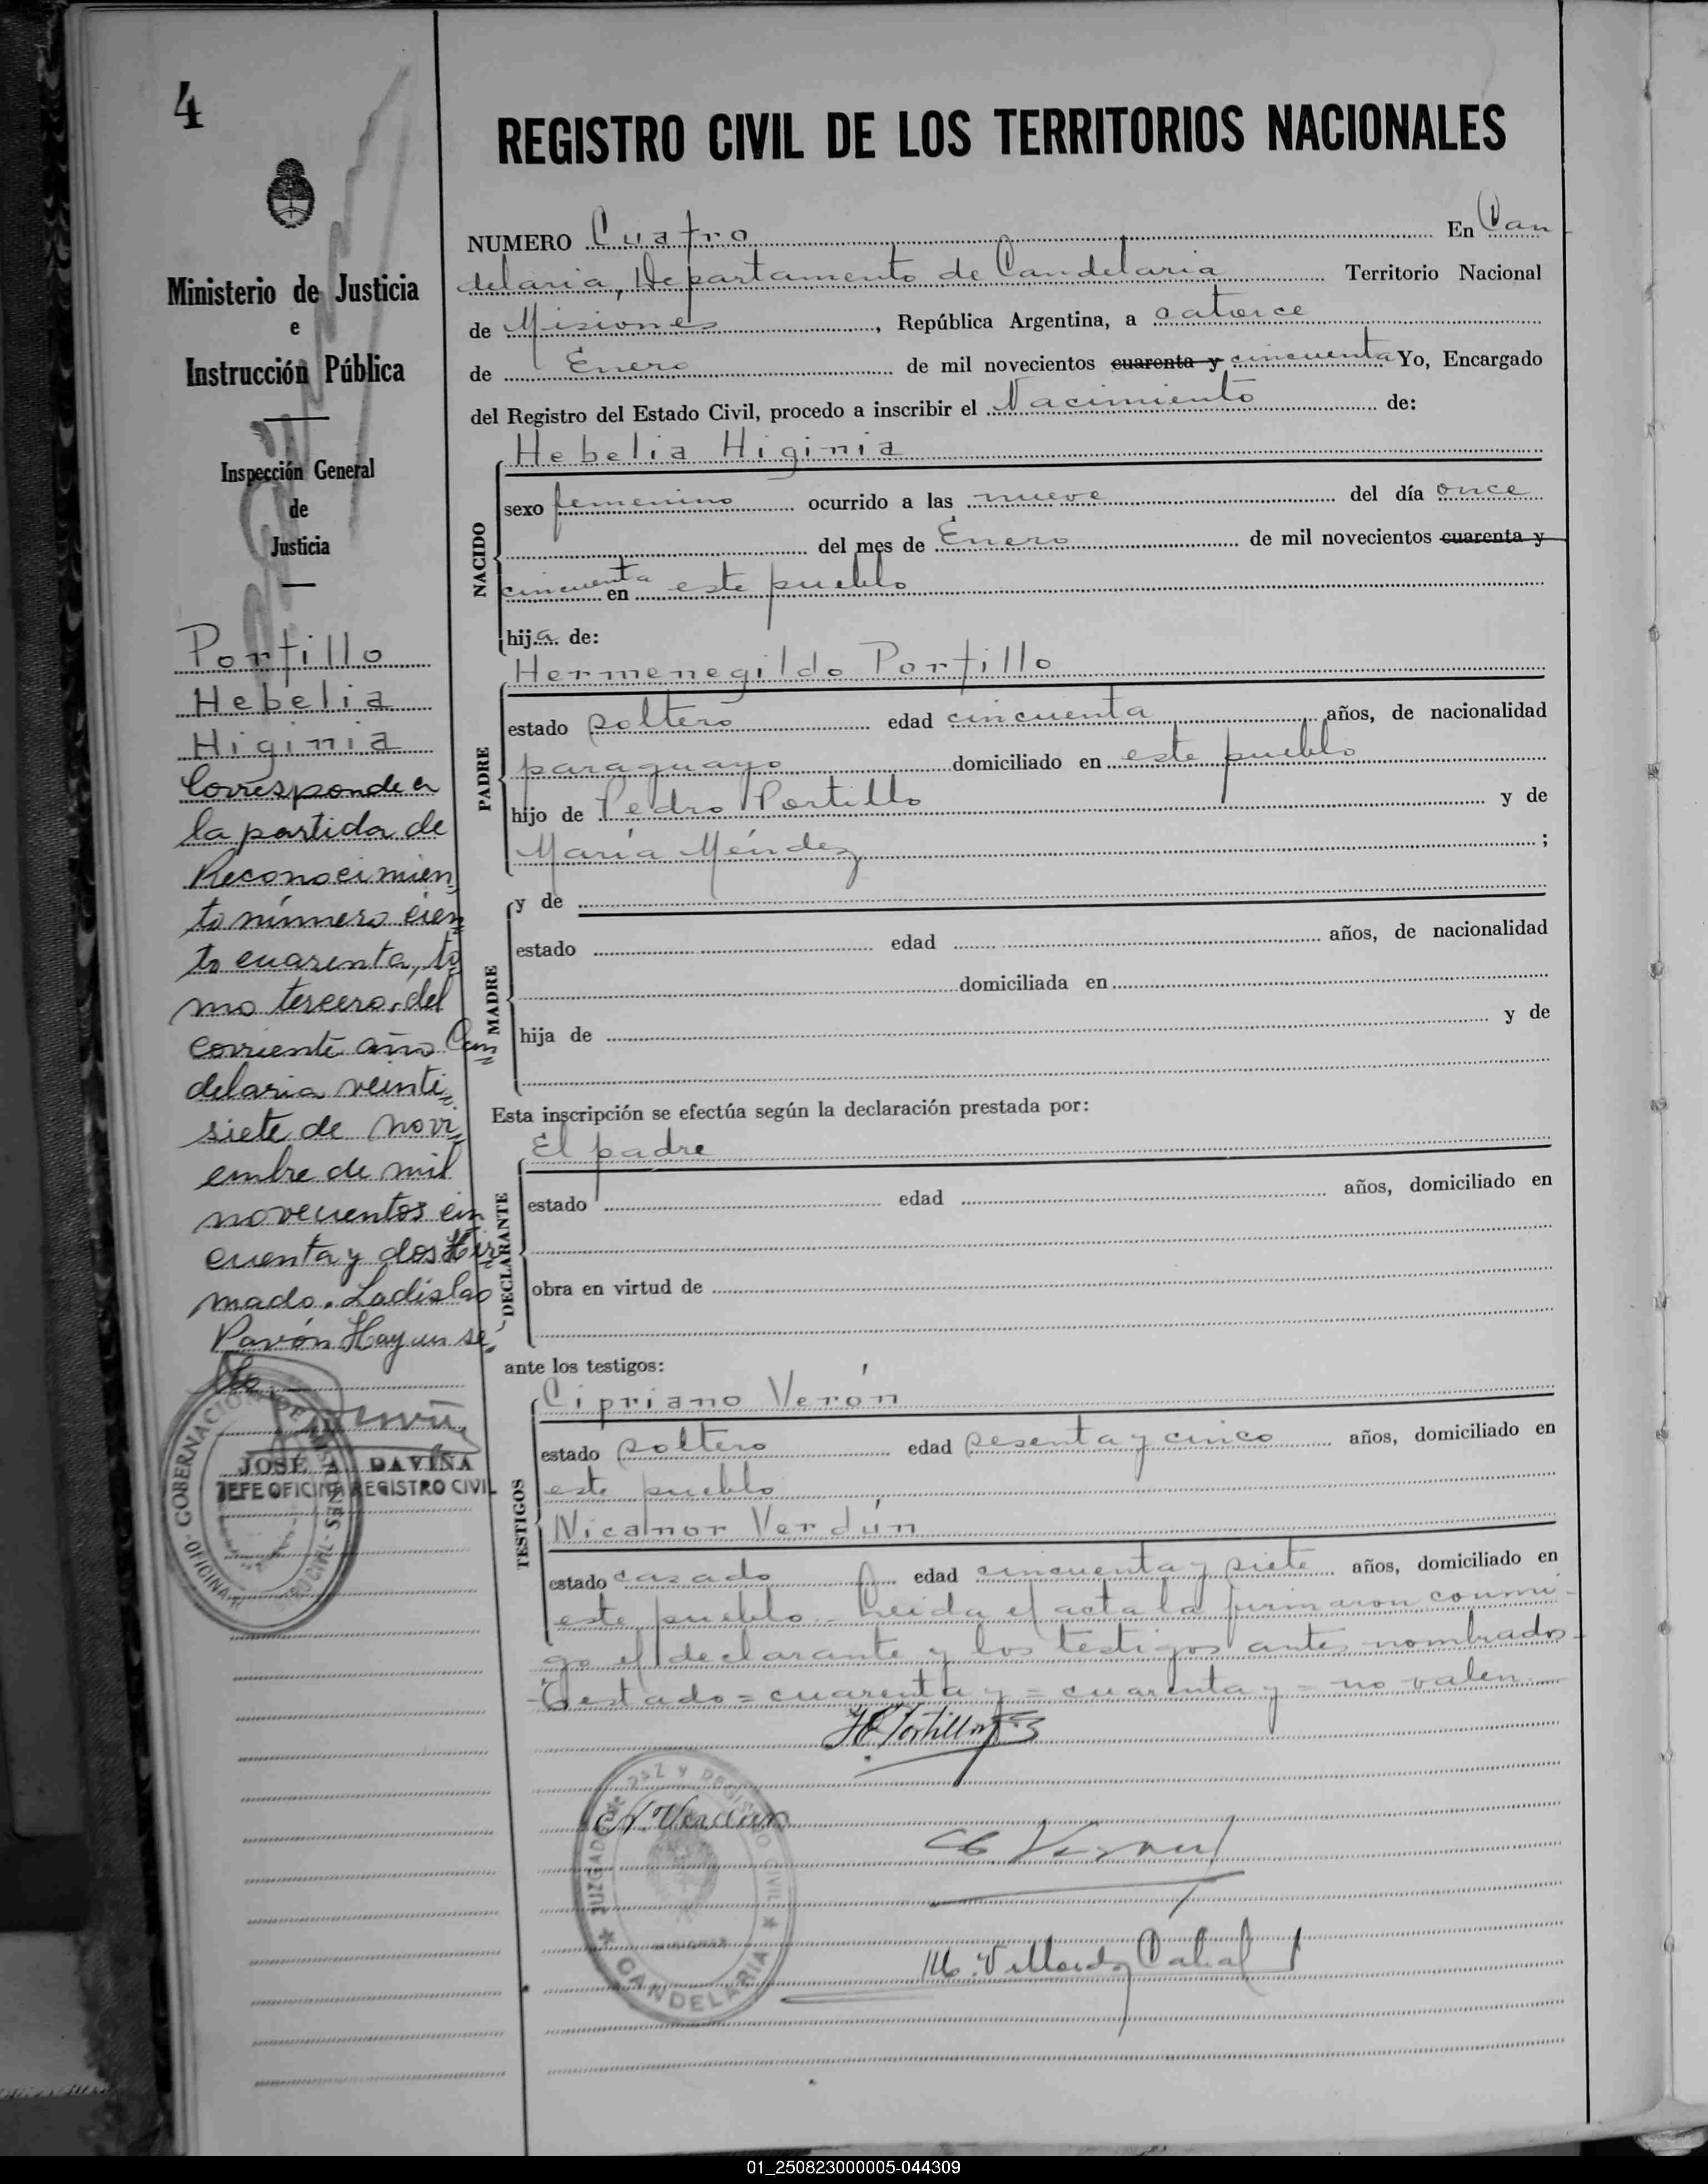 4
REGISTRO CIVIL DE LOS TERRITORIOS NACIONALES
Ministerio de Justicia
e
Instrucción Pública
Inspección General
de
Justicia
Portillo
Hebelia
Higinia
Corresponde a
la partida de
Reconocimien
to número cien
to cuarenta, to
mo tercero, del
corriente año Can
delaria veinti
siete de novi
embre de mil
novecientos cin
cuenta y dos Fir
mado. Ladislao
Pavón Hay un se
llo
JOSE A. DAVIÑA
JEFE OFICINA REGISTRO CIVIL
GOBERNACION DE MISIONES
OFICINA
NUMERO Cuatro En Can
delaria, Departamento de Candelaria Territorio Nacional
de Misiones, República Argentina, a catorce
de Enero de mil novecientos cuarenta y cincuenta Yo, Encargado
del Registro del Estado Civil, procedo a inscribir el Nacimiento de:
NACIDO
Hebelia Higinia
sexo femenino ocurrido a las nueve del día once
del mes de Enero de mil novecientos cuarenta y
cincuenta en este pueblo
hija de:
PADRE
Hermenegildo Portillo
estado soltero edad cincuenta años, de nacionalidad
paraguayo domiciliado en este pueblo
hijo de Pedro Portillo y de
María Méndez ;
MADRE
y de
estado edad años, de nacionalidad
domiciliada en
hija de y de
Esta inscripción se efectúa según la declaración prestada por:
DECLARANTE
El padre
estado edad años, domiciliado en
obra en virtud de
ante los testigos:
TESTIGOS
Cipriano Verón
estado soltero edad sesenta y cinco años, domiciliado en
este pueblo
Nicanor Verdún
estado casado edad cincuenta y siete años, domiciliado en
este pueblo. Leida el acta la firmaron conmi-
go el declarante y los testigos antes nombrados-
-Testado=cuarenta y=cuarenta y=no valen
H Portillo
N. Verdun
C Veron
M. Villordo Cabral
JUZGADO DE PAZ Y REGISTRO CIVIL
CANDELARIA
01_250823000005-044309